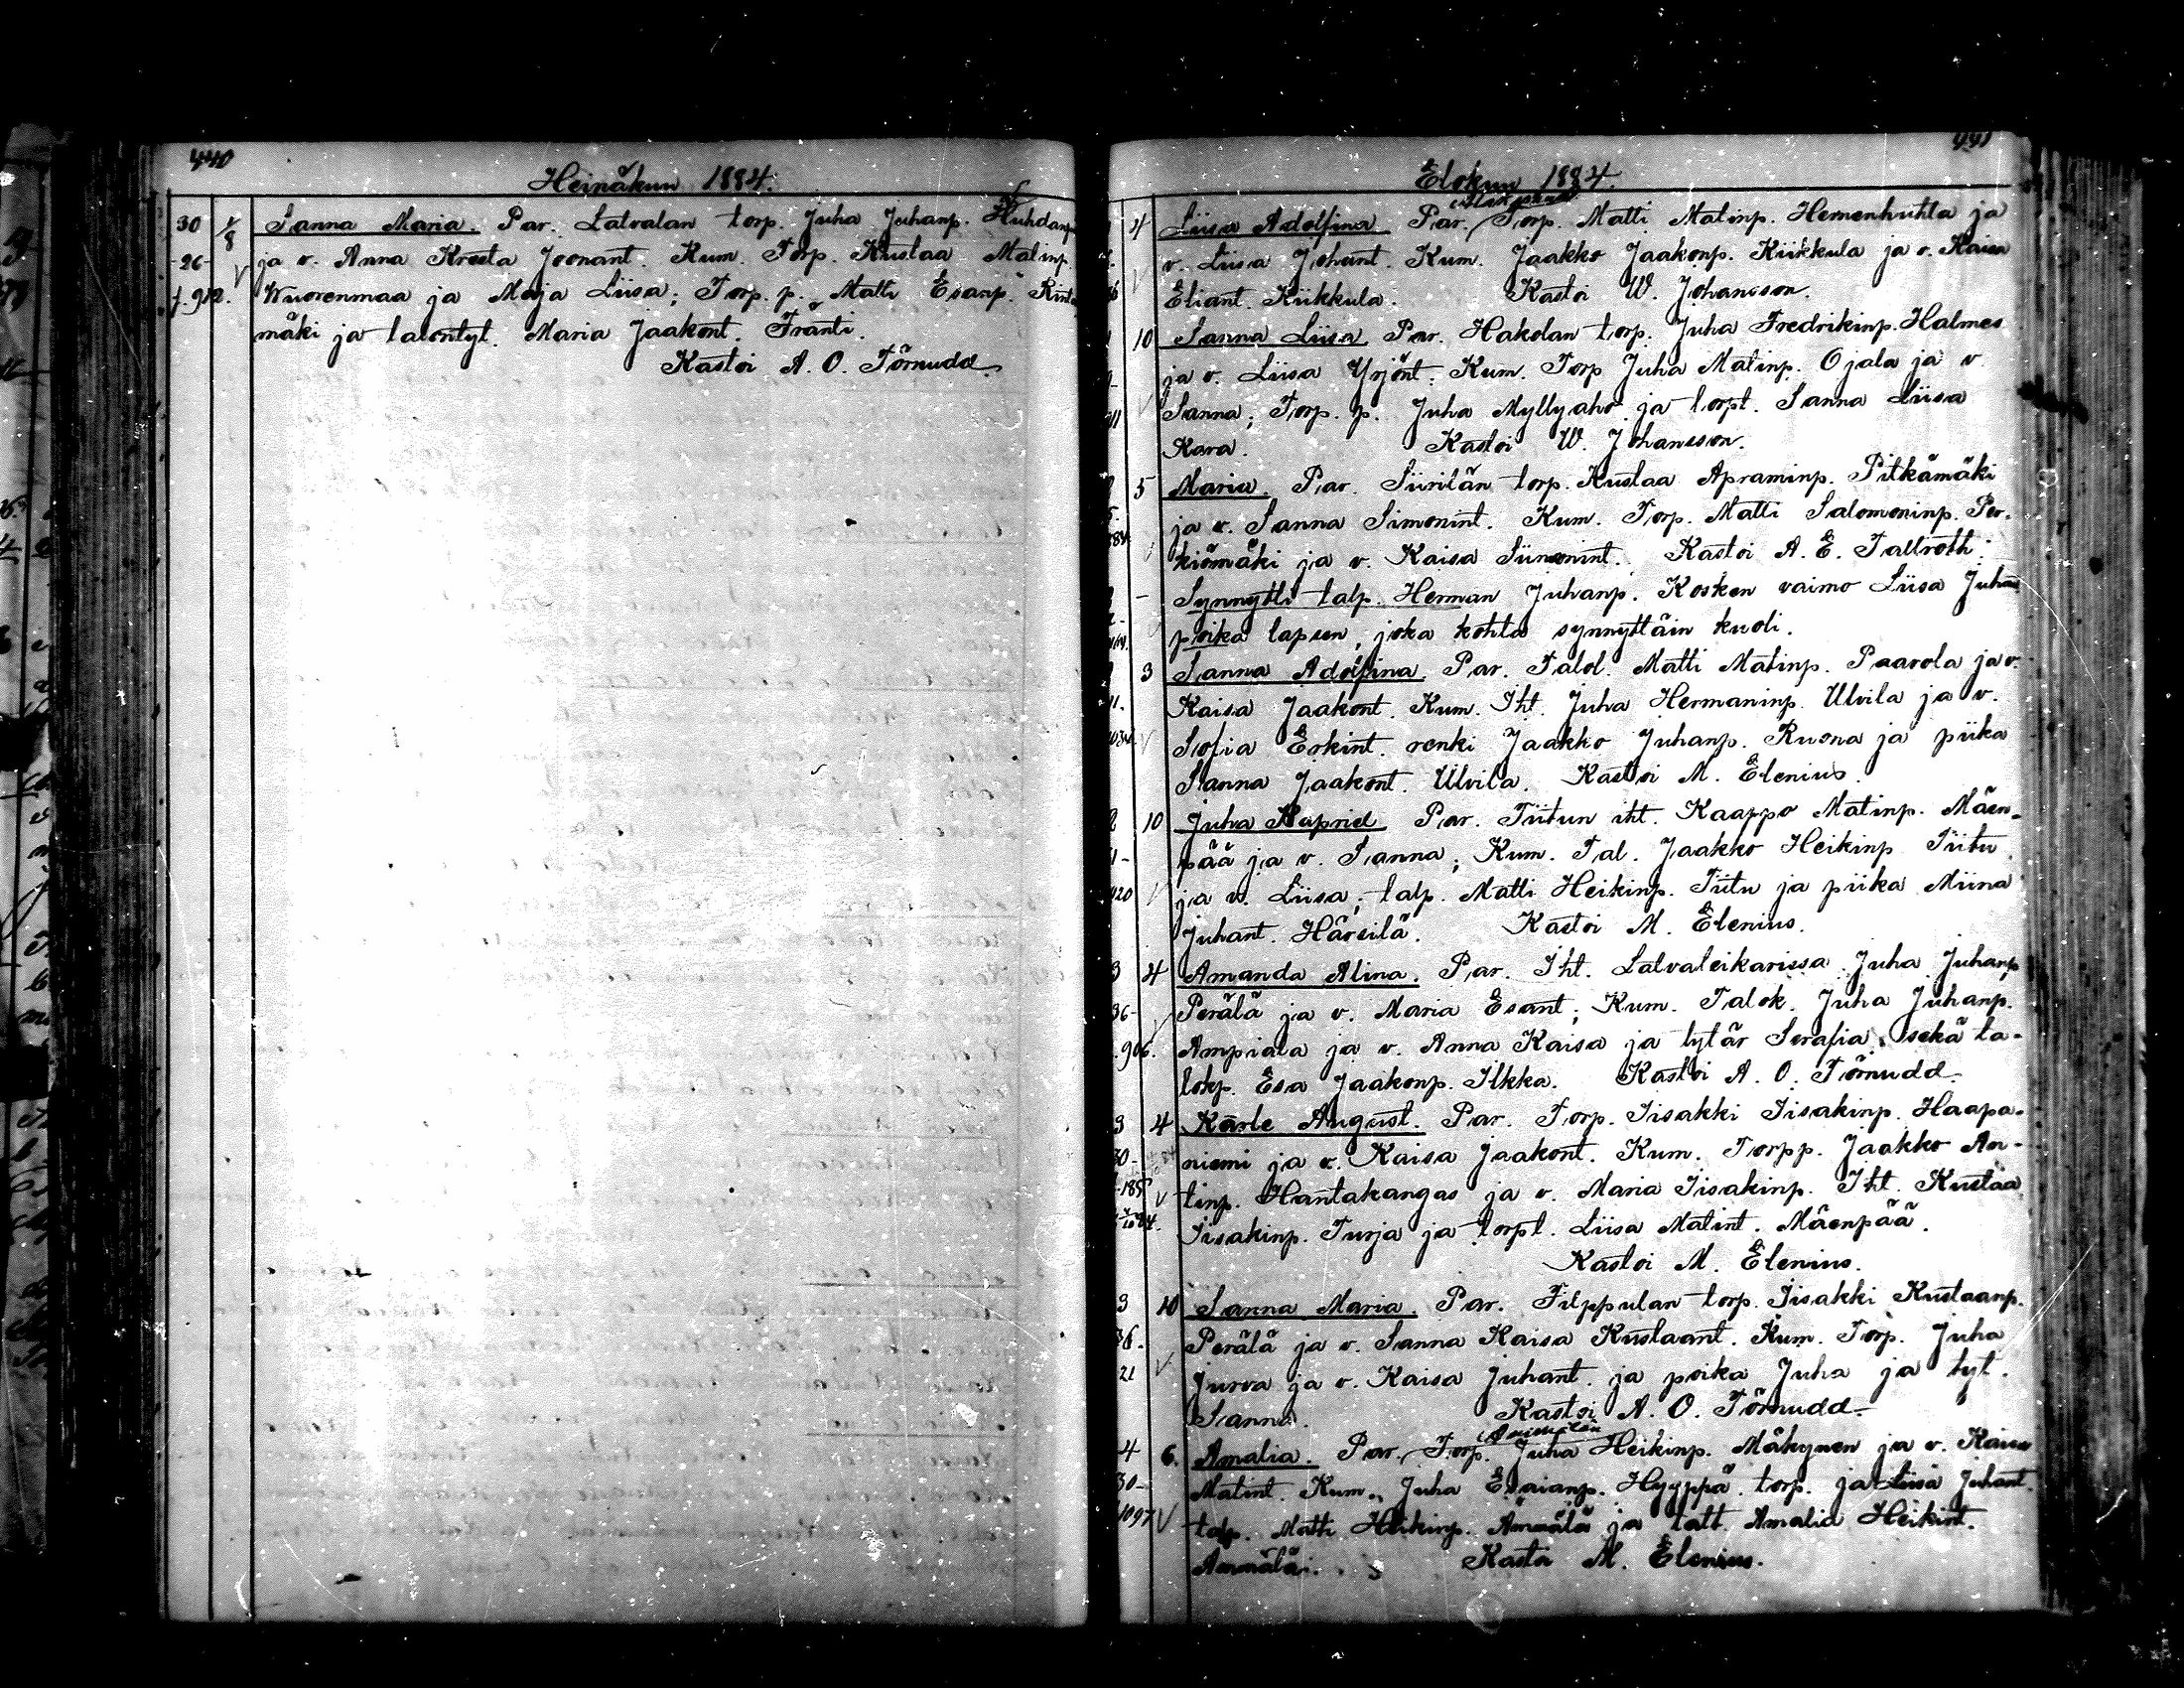 440
Heinäkuu 1884.
30 1/8 Sanna Maria. Par. Latvalan torp. Juha Juhanp. Huhdanp
-26- ja v. Anna Kreeta Joonant. Kum. Torp. Kustaa Matinp.
f. 912. V Wuorenmaa ja Maja Liisa; Torp. p. Matti Esanp. Rinta
mäki ja talontyt. Maria Jaakont. Tränti.
Kastoi A. O. Törnudd.
441
Elokuu 1884.
4 Liisa Adolfina Par. Torp. Matti Matinp. Hemenhuhta ja
v. Liisa Johant. Kum. Jaakko Jaakonp. Kiikkula ja v. Kaisa
Eliant. Kiikkula. Kastoi W. Johansson.
10 Sanna Liisa Par. Hakolan torp. Juha Fredrikinp. Halmes
ja v. Liisa Yrjönt. Kum. Torp Juha Matinp. Ojala ja v.
Sanna; Torp. p. Juha Myllyaho ja torpt. Sanna Liisa
Kara. Kastoi W. Johansson.
5 Maria. Par. Siirilän torp. Kustaa Apraminp. Pitkämäki
ja v. Sanna Simonint. Kum. Torp. Matti Salomoninp. Per-
kiömäki ja v. Kaisa Simonint. Kastoi A. E. Tallroth.
- Synnytti talp. Herman Juhanp. Kosken vaimo Liisa Juhan
poika lapsen, joka kohta synnyttäin kuoli.
3 Sanna Adolfina Par. Talol. Matti Matinp. Paavola ja v.
Kaisa Jaakont. Kum. Iht. Juha Hermaninp. Ulvila ja v.
Sofia Erkint. renki Jaakko Juhanp. Ruona ja piika
Sanna Jaakont. Ulvila. Kastoi M. Elenius.
10 Juha Kapriel Par. Tiitun iht. Kaappo Matinp. Mäen-
pää ja v. Sanna; Kum. Tal. Jaakko Heikinp Tiitu
ja v. Liisa; talp. Matti Heikinp. Tiitu ja piika Miina
Juhant. Härsilä. Kastoi M. Elenius.
3 4 Amanda Alina. Par. Iht. Latvaleikarissa Juha Juhanp
36- Perälä ja v. Maria Esant; Kum. Talok. Juha Juhanp.
906. Ampiala ja v. Anna Kaisa ja tytär Serafia sekä ta-
lokp. Esa Jaakonp. Ilkka. Kastoi A. O. Törnudd.
3 4 Karle August. Par. Torp. Iisakki Iisakinp. Haapa-
30- niemi ja v. Kaisa Jaakont. Kum. Torpp. Jaakko An-
V tinp. Hantakangas ja v. Maria Iisakinp. Iht. Kustaa
Iisakinp. Turja ja torpt. Liisa Matint. Mäenpää.
Kastoi M. Elenius.
3 10 Sanna Maria. Par. Filppulan torp. Iisakki Kustaanp.
36. Perälä ja v. Sanna Kaisa Kustaant. Kum. Torp. Juha
21 V Jurva ja v. Kaisa Juhant. ja poika Juha ja tyt.
Sanna. Kastoi A. O. Törnudd.
4 6. Amalia. Par. Torp. Juha Heikinp. Mäkynen ja v. Kaisa
30- Matint. Kum. Juha Esaianp. Hyyppä torp. ja Liisa Juhant.
1097 V talp. Matti Heikinp. Ammälä ja talt. Amalia Heikint.
Ammälä. Kastoi M. Elenius.